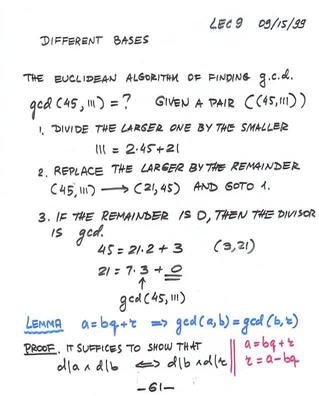 LEC 9 09/15/99
DIFFERENT BASES
THE EUCLIDEAN ALGORITHM OF FINDING g.c.d.
gcd(45,111)=? GIVEN A PAIR ((45,111))
1. DIVIDE THE LARGER ONE BY THE SMALLER
111 = 2·45+21
2. REPLACE THE LARGER BY THE REMAINDER
(45,111) ⟶ (21,45) AND GOTO 1.
3. IF THE REMAINDER IS 0, THEN THE DIVISOR
IS gcd.
45 = 21·2 + 3 (3,21)
21 = 7·3 + 0
↑
gcd(45,111)
LEMMA a=bq+r ⟹ gcd(a,b)=gcd(b,r)
PROOF. IT SUFFICES TO SHOW THAT
d|a ∧ d|b ⟺ d|b ∧ d|r
a=bq+r
r=a-bq
-61-